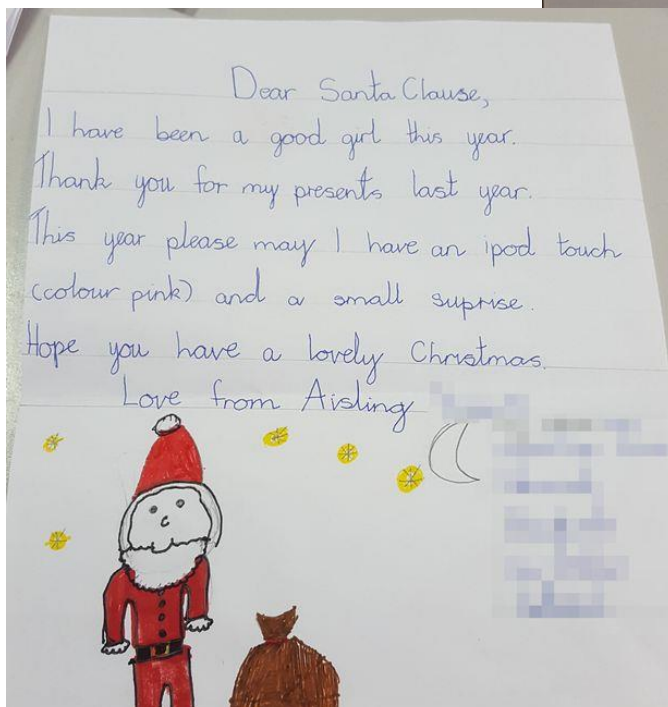 Dear Santa Clause,
I have been a good girl this year.
Thank you for my presents last year.
This year please may I have an ipod touch
(colour pink) and a small suprise.
Hope you have a lovely Christmas.
Love from Aisling